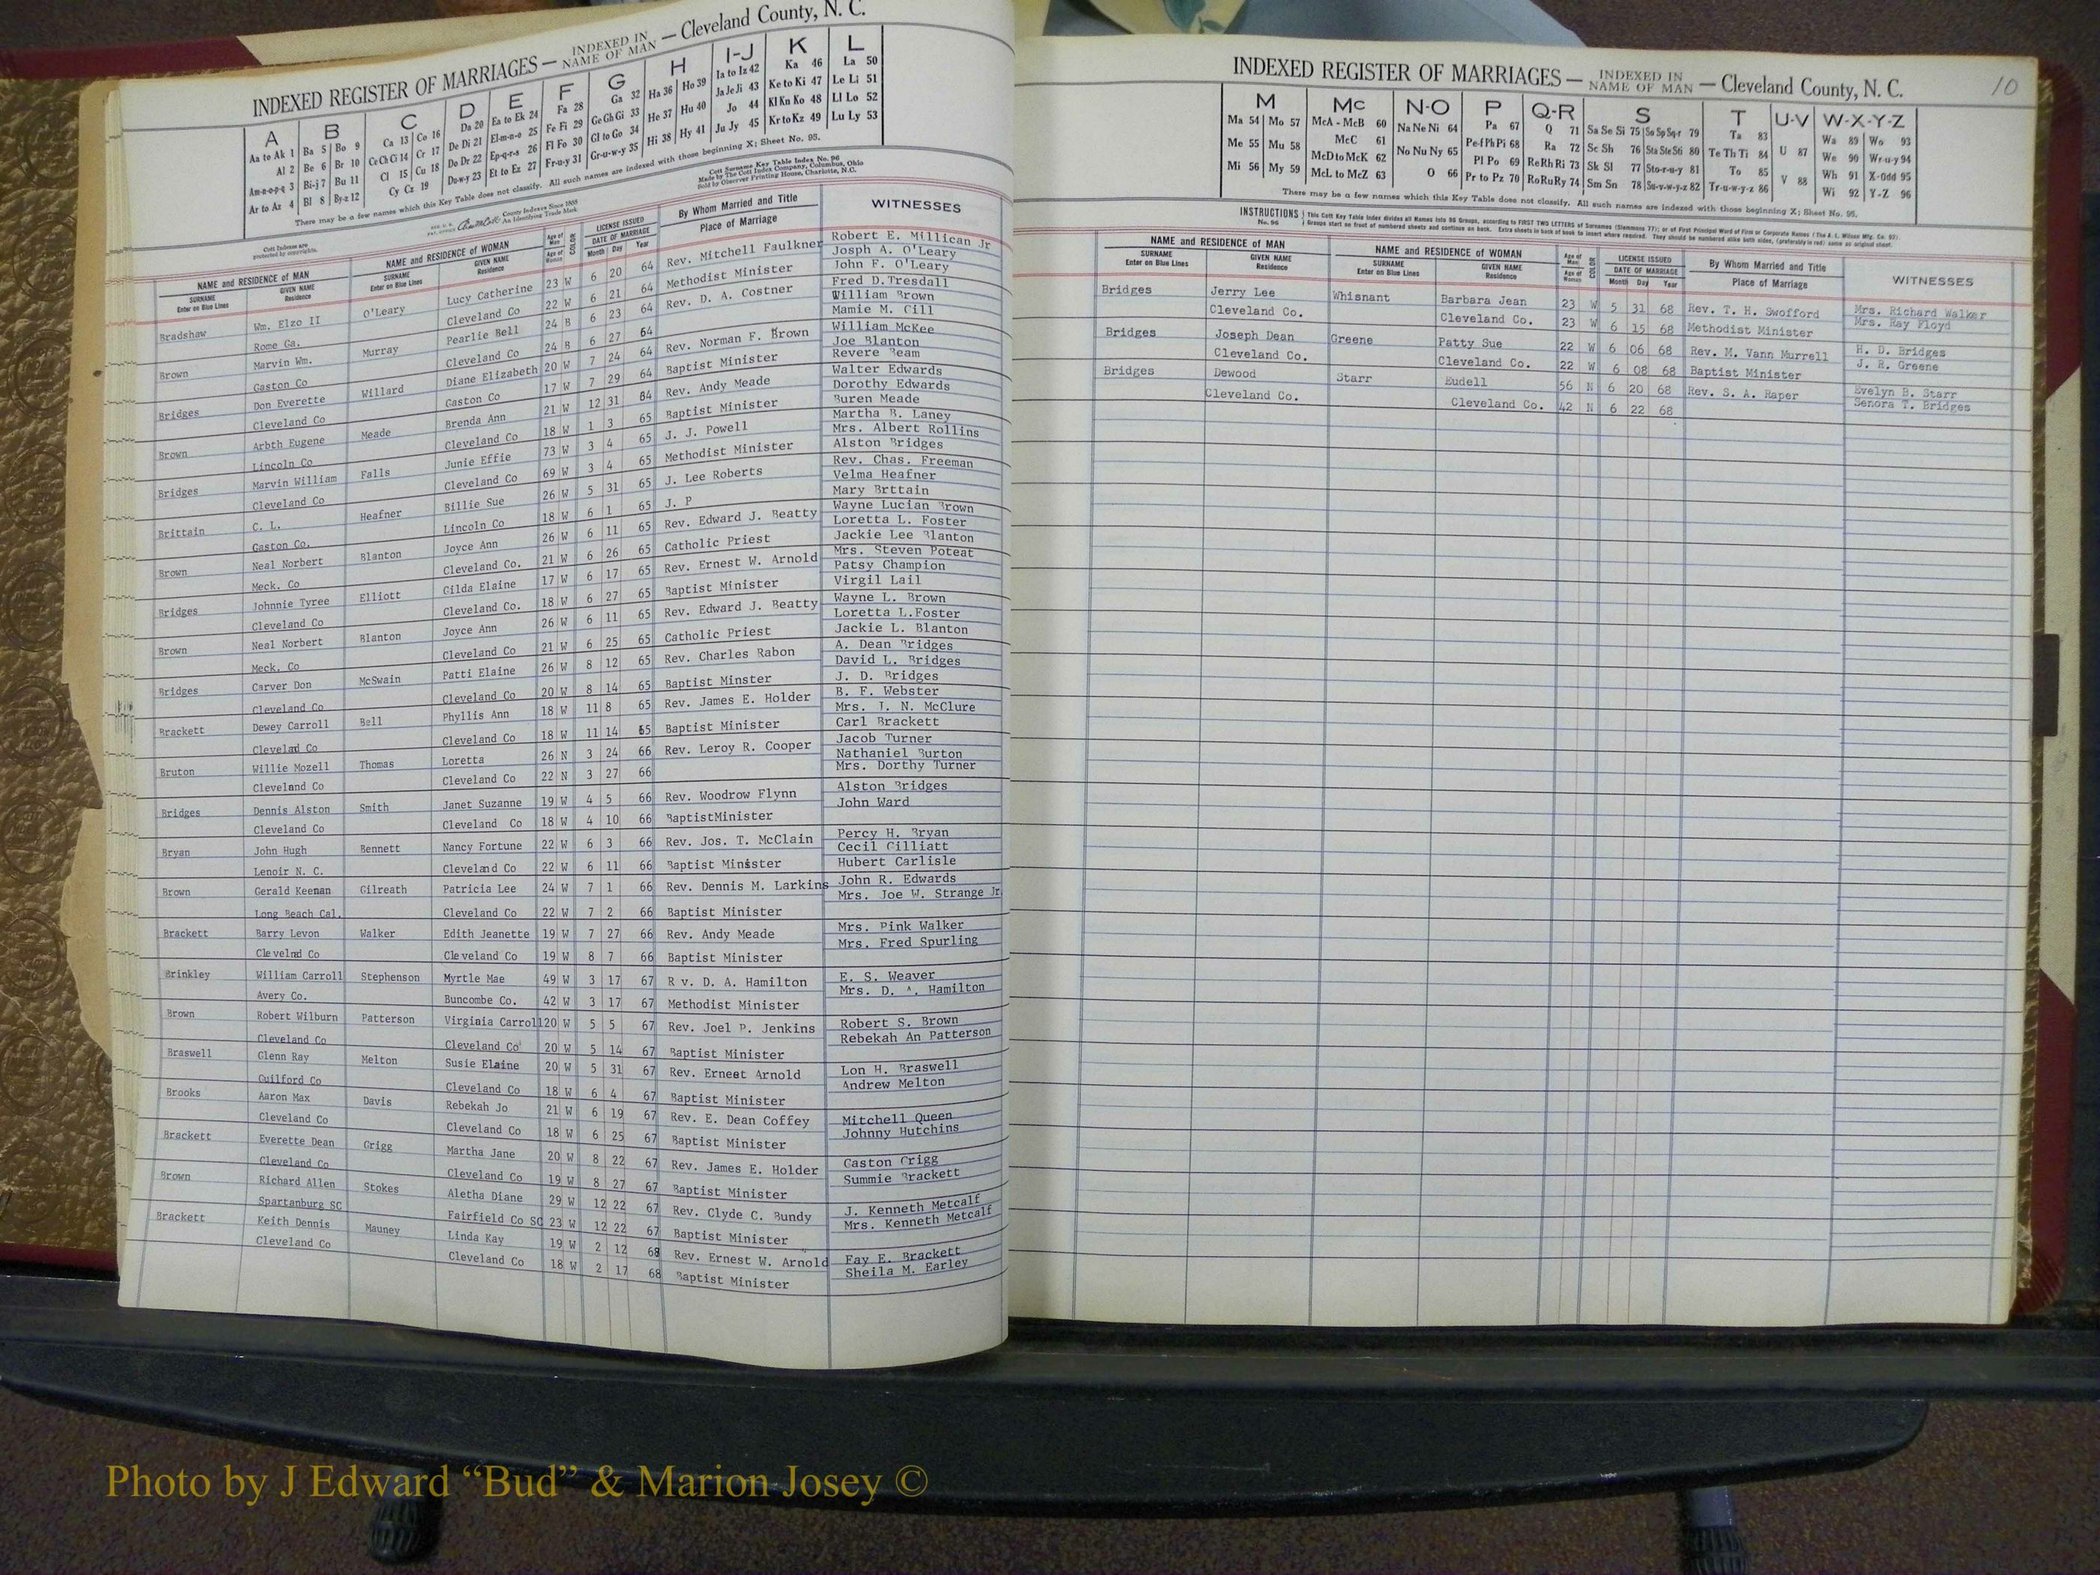 INDEXED REGISTER OF MARRIAGES — INDEXED IN NAME OF MAN — Cleveland County, N. C.
A B C D E F G H I-J K L
Aa to Ak 1 Ba 5 Bo 9 Ca 13 Co 16 Da 20 Ea to Ek 24 Fa 28 Ga 32 Ha 36 Ho 39 Ia to Iz 42 Ka 46 La 50
Al 2 Be 6 Br 10 Ce Ch Ci 14 Cr 17 De Di 21 El-m-n-o 25 Fe Fi 29 Ge Gh Gi 33 He 37 Hu 40 Ja Je Ji 43 Ke to Ki 47 Le Li 51
Am-n-o-p-q 3 Bi-j 7 Bu 11 Cl 15 Cu 18 Do Dr 22 Ep-q-r-s 26 Fl Fo 30 Gl to Go 34 Hi 38 Hy 41 Jo 44 Kl Kn Ko 48 Ll Lo 52
Ar to Az 4 Bl 8 By-z 12 Cy Cz 19 Du-w-y 23 Et to Ez 27 Fr-u-y 31 Gr-u-w-y 35 Ju Jy 45 Kr to Kz 49 Lu Ly 53
There may be a few names which this Key Table does not classify. All such names are indexed with those beginning X; Sheet No. 95.
Cott Surname Key Table Index No. 96
Made by The Cott Index Company, Columbus, Ohio
Sold by Observer Printing House, Charlotte, N.C.
Cott Indexes are protected by copyrights.
County Indexes Since 1888
An Identifying Trade Mark
NAME and RESIDENCE of MAN NAME and RESIDENCE of WOMAN Age of Man COLOR LICENSE ISSUED By Whom Married and Title WITNESSES
SURNAME Enter on Blue Lines GIVEN NAME Residence SURNAME Enter on Blue Lines GIVEN NAME Residence Age of Woman DATE OF MARRIAGE Month Day Year Place of Marriage
Bradshaw Wm. Elzo II O'Leary Lucy Catherine 23 W 6 20 64 Rev. Mitchell Faulkner Robert E. Millican Jr
Josph A. O'Leary
Rome Ga. Cleveland Co 22 W 6 21 64 Methodist Minister John F. O'Leary
Brown Marvin Wm. Murray Pearlie Bell 24 B 6 23 64 Rev. D. A. Costner Fred D.Tresdall
William Brown
Gaston Co Cleveland Co 24 B 6 27 64 Mamie M. Gill
Bridges Don Everette Willard Diane Elizabeth 20 W 7 24 64 Rev. Norman F. Brown William McKee
Joe Blanton
Cleveland Co Gaston Co 17 W 7 29 64 Baptist Minister Revere Beam
Brown Arbth Eugene Meade Brenda Ann 21 W 12 31 64 Rev. Andy Meade Walter Edwards
Dorothy Edwards
Lincoln Co Cleveland Co 18 W 1 3 65 Baptist Minister Buren Meade
Bridges Marvin William Falls Junie Effie 73 W 3 4 65 J. J. Powell Martha B. Laney
Mrs. Albert Rollins
Cleveland Co Cleveland Co 69 W 3 4 65 Methodist Minister Alston Bridges
Brittain C. L. Heafner Billie Sue 26 W 5 31 65 J. Lee Roberts Rev. Chas. Freeman
Velma Heafner
Gaston Co. Lincoln Co 18 W 6 1 65 J. P Mary Brttain
Brown Neal Norbert Blanton Joyce Ann 26 W 6 11 65 Rev. Edward J. Beatty Wayne Lucian Brown
Loretta L. Foster
Meck. Co Cleveland Co. 21 W 6 26 65 Catholic Priest Jackie Lee Blanton
Bridges Johnnie Tyree Elliott Gilda Elaine 17 W 6 17 65 Rev. Ernest W. Arnold Mrs. Steven Poteat
Patsy Champion
Cleveland Co Cleveland Co. 18 W 6 27 65 Baptist Minister Virgil Lail
Brown Neal Norbert Blanton Joyce Ann 26 W 6 11 65 Rev. Edward J. Beatty Wayne L. Brown
Loretta L.Foster
Meck. Co Cleveland Co 21 W 6 25 65 Catholic Priest Jackie L. Blanton
Bridges Carver Don McSwain Patti Elaine 26 W 8 12 65 Rev. Charles Rabon A. Dean Bridges
David L. Bridges
Cleveland Co Cleveland Co 20 W 8 14 65 Baptist Minster J. D. Bridges
Brackett Dewey Carroll Bell Phyllis Ann 18 W 11 8 65 Rev. James E. Holder B. F. Webster
Mrs. J. N. McClure
Clevelad Co Cleveland Co 18 W 11 14 65 Baptist Minister Carl Brackett
Bruton Willie Mozell Thomas Loretta 26 N 3 24 66 Rev. Leroy R. Cooper Jacob Turner
Nathaniel Burton
Cleveland Co Cleveland Co 22 N 3 27 66 Mrs. Dorthy Turner
Bridges Dennis Alston Smith Janet Suzanne 19 W 4 5 66 Rev. Woodrow Flynn Alston Bridges
Cleveland Co Cleveland Co 18 W 4 10 66 BaptistMinister John Ward
Bryan John Hugh Bennett Nancy Fortune 22 W 6 3 66 Rev. Jos. T. McClain Percy H. Bryan
Cecil Gilliatt
Lenoir N. C. Cleveland Co 22 W 6 11 66 Baptist Minister Hubert Carlisle
Brown Gerald Keenan Gilreath Patricia Lee 24 W 7 1 66 Rev. Dennis M. Larkins John R. Edwards
Mrs. Joe W. Strange Jr.
Long Beach Cal. Cleveland Co 22 W 7 2 66 Baptist Minister
Brackett Barry Levon Walker Edith Jeanette 19 W 7 27 66 Rev. Andy Meade Mrs. Pink Walker
Clevelnd Co Cleveland Co 19 W 8 7 66 Baptist Minister Mrs. Fred Spurling
Brinkley William Carroll Stephenson Myrtle Mae 49 W 3 17 67 R v. D. A. Hamilton E. S. Weaver
Avery Co. Buncombe Co. 42 W 3 17 67 Methodist Minister Mrs. D. A. Hamilton
Brown Robert Wilburn Patterson Virginia Carroll 20 W 5 5 67 Rev. Joel P. Jenkins Robert S. Brown
Cleveland Co Cleveland Co 20 W 5 14 67 Baptist Minister Rebekah An Patterson
Braswell Glenn Ray Melton Susie Elaine 20 W 5 31 67 Rev. Ernest Arnold Lon H. Braswell
Guilford Co Cleveland Co 18 W 6 4 67 Baptist Minister Andrew Melton
Brooks Aaron Max Davis Rebekah Jo 21 W 6 19 67 Rev. E. Dean Coffey Mitchell Queen
Cleveland Co Cleveland Co 18 W 6 25 67 Baptist Minister Johnny Hutchins
Brackett Everette Dean Grigg Martha Jane 20 W 8 22 67 Rev. James E. Holder Gaston Grigg
Cleveland Co Cleveland Co 19 W 8 27 67 Baptist Minister Summie Brackett
Brown Richard Allen Stokes Aletha Diane 29 W 12 22 67 Rev. Clyde C. Bundy J. Kenneth Metcalf
Spartanburg SC Fairfield Co SC 23 W 12 22 67 Baptist Minister Mrs. Kenneth Metcalf
Brackett Keith Dennis Mauney Linda Kay 19 W 2 12 68 Rev. Ernest W. Arnold Fay E. Brackett
Cleveland Co Cleveland Co 18 W 2 17 68 Baptist Minister Sheila M. Earley
INDEXED REGISTER OF MARRIAGES — INDEXED IN NAME OF MAN — Cleveland County, N. C. 10
M Mc N-O P Q-R S T U-V W-X-Y-Z
Ma 54 Mo 57 McA - McB 60 Na Ne Ni 64 Pa 67 Q 71 Sa Se Si 75 So Sp Sq-r 79 Ta 83 U 87 Wa 89 Wo 93
Me 55 Mu 58 McC 61 No Nu Ny 65 Pe-f Ph Pi 68 Ra 72 Sc Sh 76 Sta Ste Sti 80 Te Th Ti 84 V 88 We 90 Wr-u-y 94
McD to McK 62 O 66 Pl Po 69 Re Rh Ri 73 Sk Sl 77 Sto-r-u-y 81 To 85 Wh 91 X-Odd 95
Mi 56 My 59 McL to McZ 63 Pr to Pz 70 Ro Ru Ry 74 Sm Sn 78 Su-v-w-y-z 82 Tr-u-w-y-z 86 Wi 92 Y-Z 96
There may be a few names which this Key Table does not classify. All such names are indexed with those beginning X; Sheet No. 95.
INSTRUCTIONS No. 96 This Cott Key Table Index divides all Names into 96 Groups, according to FIRST TWO LETTERS of Surnames (Slemmons 77); or of First Principal Word of Firm or Corporate Names (The A. L. Wilson Mfg. Co. 92).
Groups start on front of numbered sheets and continue on back. Extra sheets in back of book to insert where required. They should be numbered alike both sides, (preferably in red) same as original sheet.
NAME and RESIDENCE of MAN NAME and RESIDENCE of WOMAN Age of Man COLOR LICENSE ISSUED By Whom Married and Title WITNESSES
SURNAME Enter on Blue Lines GIVEN NAME Residence SURNAME Enter on Blue Lines GIVEN NAME Residence Age of Woman DATE OF MARRIAGE Month Day Year Place of Marriage
Bridges Jerry Lee Whisnant Barbara Jean 23 W 5 31 68 Rev. T. H. Swofford Mrs. Richard Walker
Cleveland Co. Cleveland Co. 23 W 6 15 68 Methodist Minister Mrs. Ray Floyd
Bridges Joseph Dean Greene Patty Sue 22 W 6 06 68 Rev. M. Vann Murrell H. D. Bridges
Cleveland Co. Cleveland Co. 22 W 6 08 68 Baptist Minister J. R. Greene
Bridges Dewood Starr Eudell 56 N 6 20 68 Rev. S. A. Raper Evelyn B. Starr
Cleveland Co. Cleveland Co. 42 N 6 22 68 Senora T. Bridges
Photo by J Edward “Bud” & Marion Josey ©